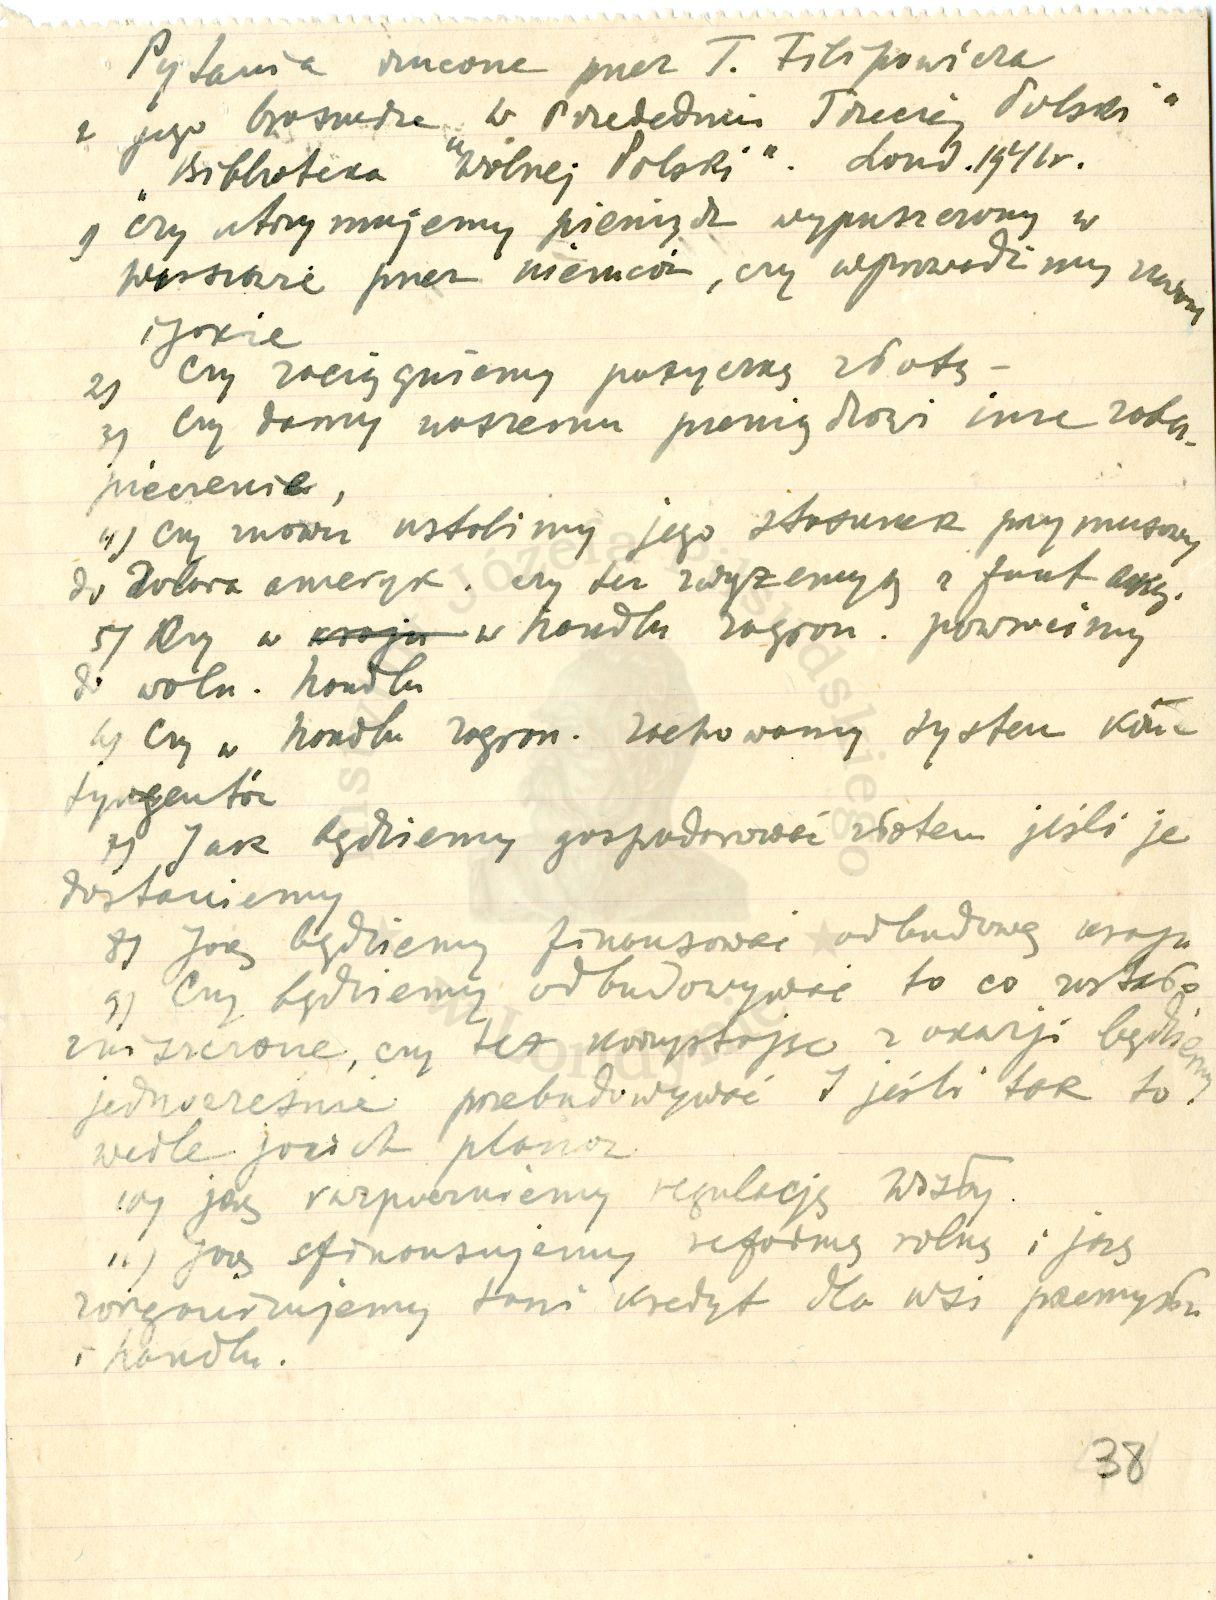 Pytania rzucone przez T. Filipowicza
z jego broszurze „W Przededniu Trzeciej Polski"
„Biblioteka "Wolnej Polski". Lond. 1941 r.
1) Czy utrzymujemy pieniądz wypuszczony w
Warszawie przez niemców, czy wprowadzimy nowy
i jakie
2) Czy zaciągniemy pożyczkę złotą –
3) Czy damy naszemu pieniądzowi inne zabez-
pieczenie,
4) Czy znowu ustalimy jego stosunek przymusowy
do dolara ameryk. czy też zwiążemy ją z funt ang.
5) Czy w kraju w handlu zagran. powrócimy
do woln. handlu
6) Czy w handlu zagran. zachowamy system kon-
tyngentów
7) Jak będziemy gospodarować złotem jeśli je
dostaniemy
8) Jak będziemy finansować odbudowę kraju
9) Czy będziemy odbudowywać to co zostało
zniszczone, czy też korzystając z okazji będziemy
jednocześnie przebudowywać I jeśli tak to
wedle jakich planów
10) jak rozpoczniemy regulację Wisły.
11) Jak sfinansujemy reformę rolną i jak
zorganizujemy tani kredyt dla wsi przemysłu
i handlu.
38
Józefa Piłsudskiego
w Londynie